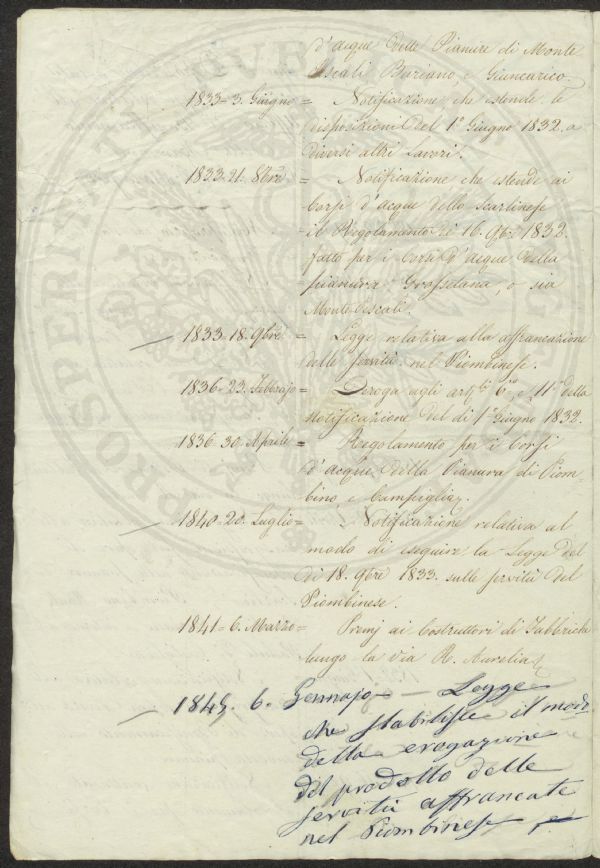 d'acque delle Pianure di Monte
Pescali Buriano e Giuncarico.
1833=3. Giugno = Notificazione che estende le
disposizioni del 1º Giugno 1832. a
diversi altri Lavori.
1833.21. 8bre = Notificazione che estende ai
Corsi d'acque dello Scarlinese
il Regolamento di 16. 9bre 1832.
fatto per i Corsi d'acque della
pianura Grossetana, o sia
Monte Pescali.
— 1833.18. 9bre = Legge relativa alla affrancazione
delle servitù nel Piombinese.
1836=23. Febbrajo = Deroga agli arti. 6º e 11º della
Notificazione del di 1º Giugno 1832.
1836.30. Aprile = Regolamento per i Corsi
d'acque della Pianura di Piom-
bino e Campiglia.
— 1840=20. Luglio = Notificazione relativa al
modo di eseguire la Legge del
di 18. 9bre 1833. sulle servitù del
Piombinese.
1841=6. Marzo = Premj ai Costruttori di Fabbriche
lungo la via R. Aurelia
— 1845. 6. Gennajo — Legge
che stabilisce il modo
della erogazione
del prodotto delle
servitù affrancate
nel Piombinese
PROSPERITATI PUBLICAE